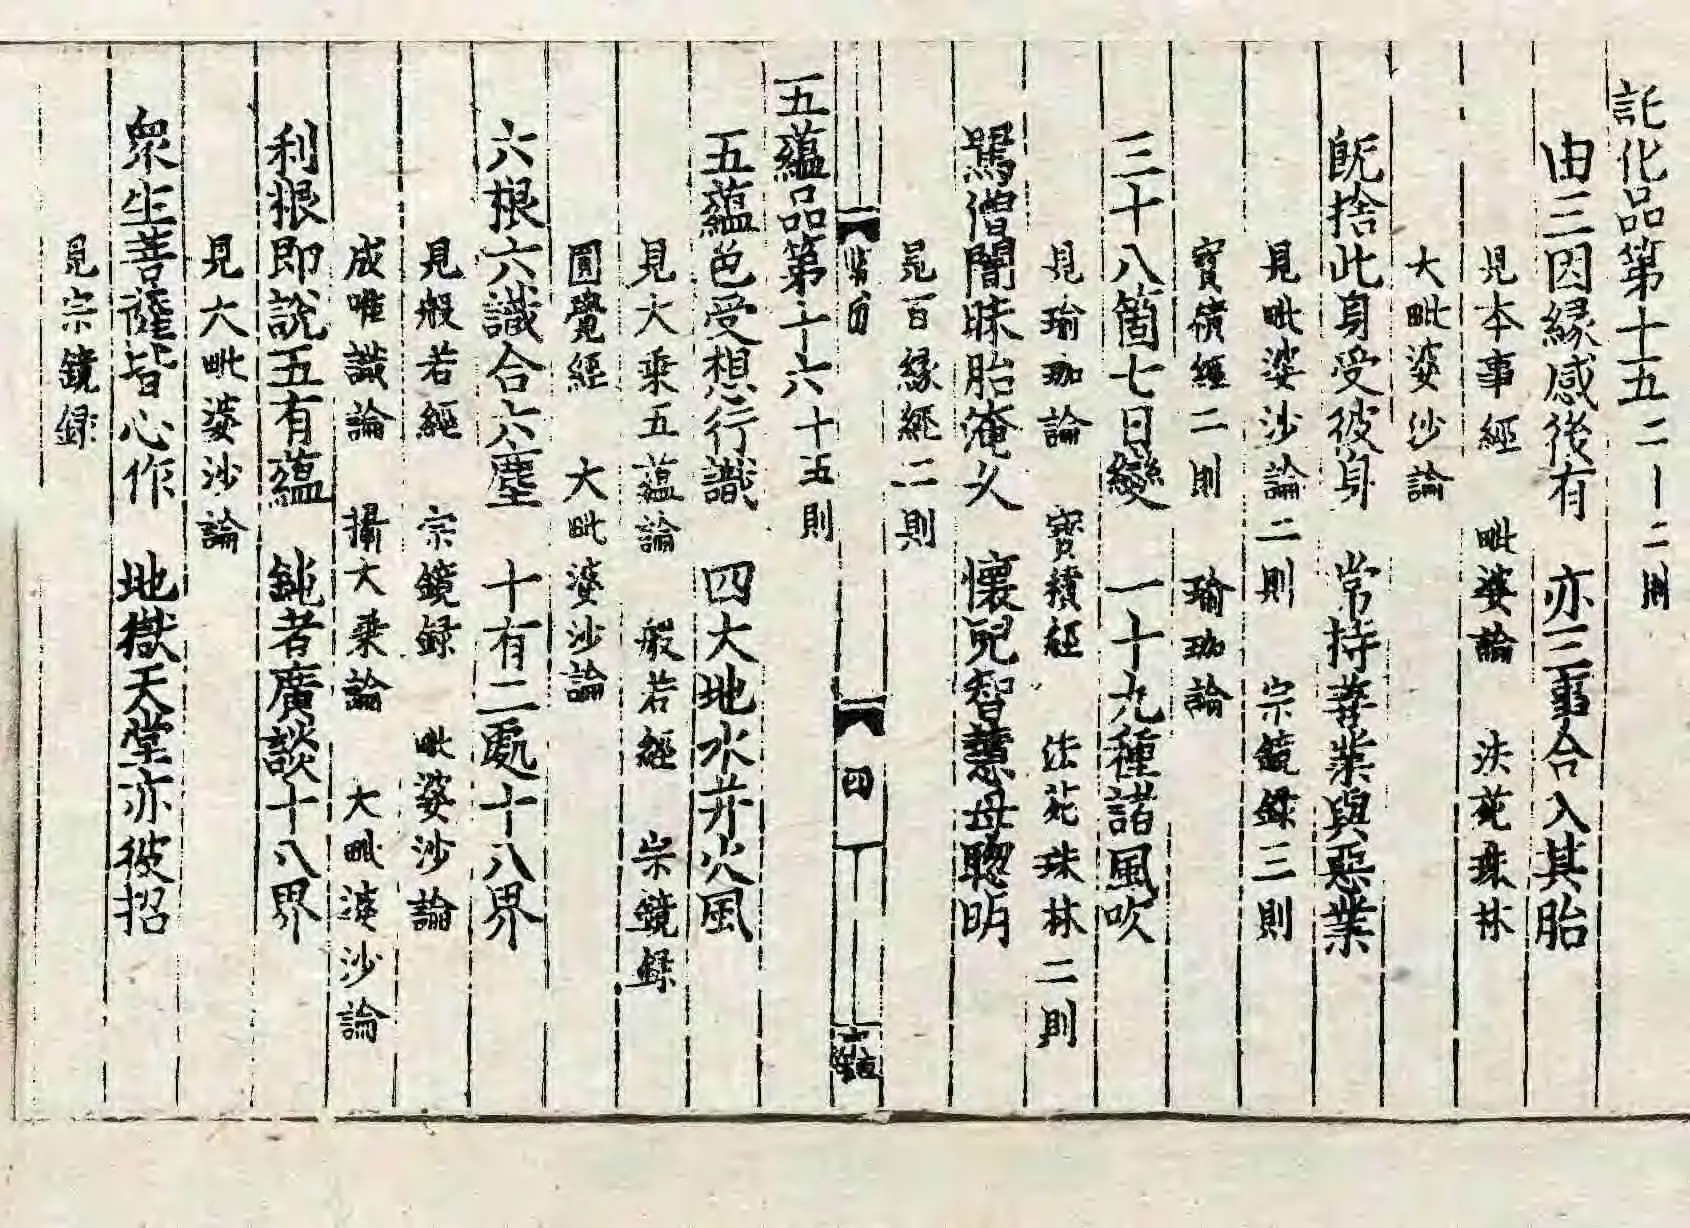 託化品第十五 二十二則
由三因緣感後有　亦三事合入其胎
見本事經　毗婆論　法苑珠林
大毗婆沙論
既捨此身受彼身　常持善業與惡業
見毗婆沙論二則　宗鏡録三則
寶積經二則　瑜珈論
三十八箇七日變　一十九種諸風吹
見瑜珈論　寶積經　法苑珠林二則
罵僧闇昧胎淹久　懷兒智慧母聰明
見百緣經二則
四
五蘊品第十六 十五則
五蘊色受想行識　四大地水并火風
見大乘五蘊論　般若經　宗鏡録
圓覺經　大毗婆沙論
六根六識合六塵　十有二處十八界
見般若經　宗鏡録　毗婆沙論
成唯識論　攝大乘論　大毗婆沙論
利根即說五有蘊　鈍者廣談十八界
見大毗婆沙論
眾生菩薩皆心作　地獄天堂亦彼招
見宗鏡録